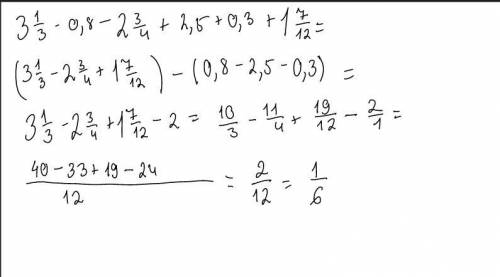 3 1/3 - 0,8 - 2 3/4 + 2,5 + 0,3 + 1 7/12 =
(3 1/3 - 2 3/4 + 1 7/12) - (0,8 - 2,5 - 0,3) =
3 1/3 - 2 3/4 + 1 7/12 - 2 = 10/3 - 11/4 + 19/12 - 2/1 =
(40 - 33 + 19 - 24)/12 = 2/12 = 1/6